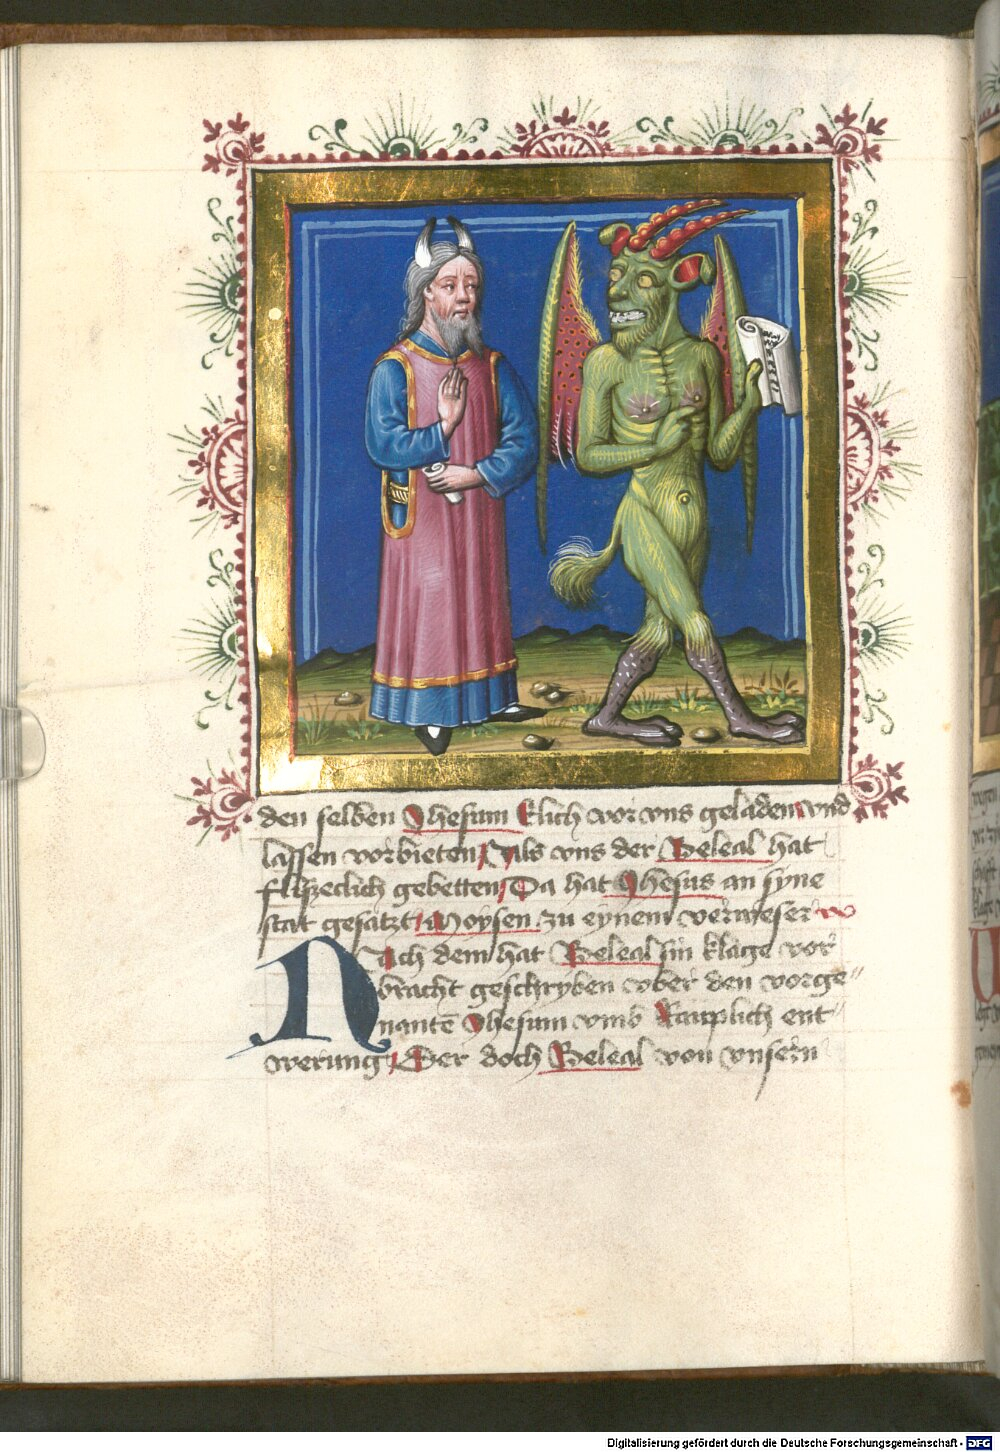 den selben Jhesum klich vor vns geladen vnd
lassen vorbieten / Als vns der Beleal hat
flißeclich gebetten / Da hat Jhesus an syne
stat gesatzt / Moysen zu eynem verweser
Nach dem hat Beleal sin klage vor
bracht geschryben vber den vorge"
nantē Jhesum vmb Rauplich ent
werung / Der doch Beleal von vnsern
Digitalisierung gefördert durch die Deutsche Forschungsgemeinschaft - DFG